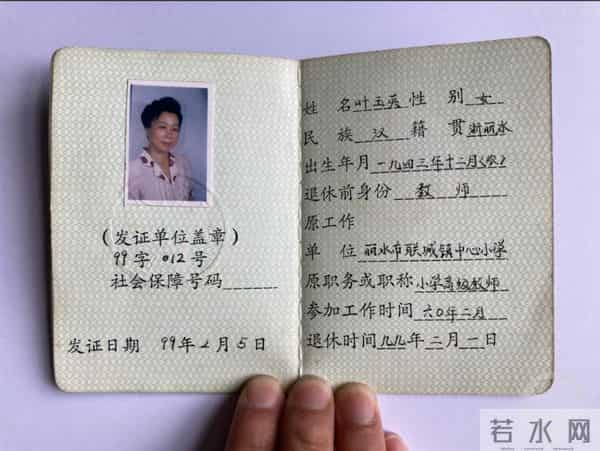 (发证单位盖章)
99字 012号
社会保障号码
发证日期 99年2月5日
姓 名 叶玉英 性 别 女
民 族 汉 籍 贯 浙丽水
出生年月 一九四三年十二月(农)
退休前身份 教 师
原工作
单 位 丽水市联城镇中心小学
原职务或职称 小学高级教师
参加工作时间 六〇年二月
退休时间 九九年二月一日
若水网